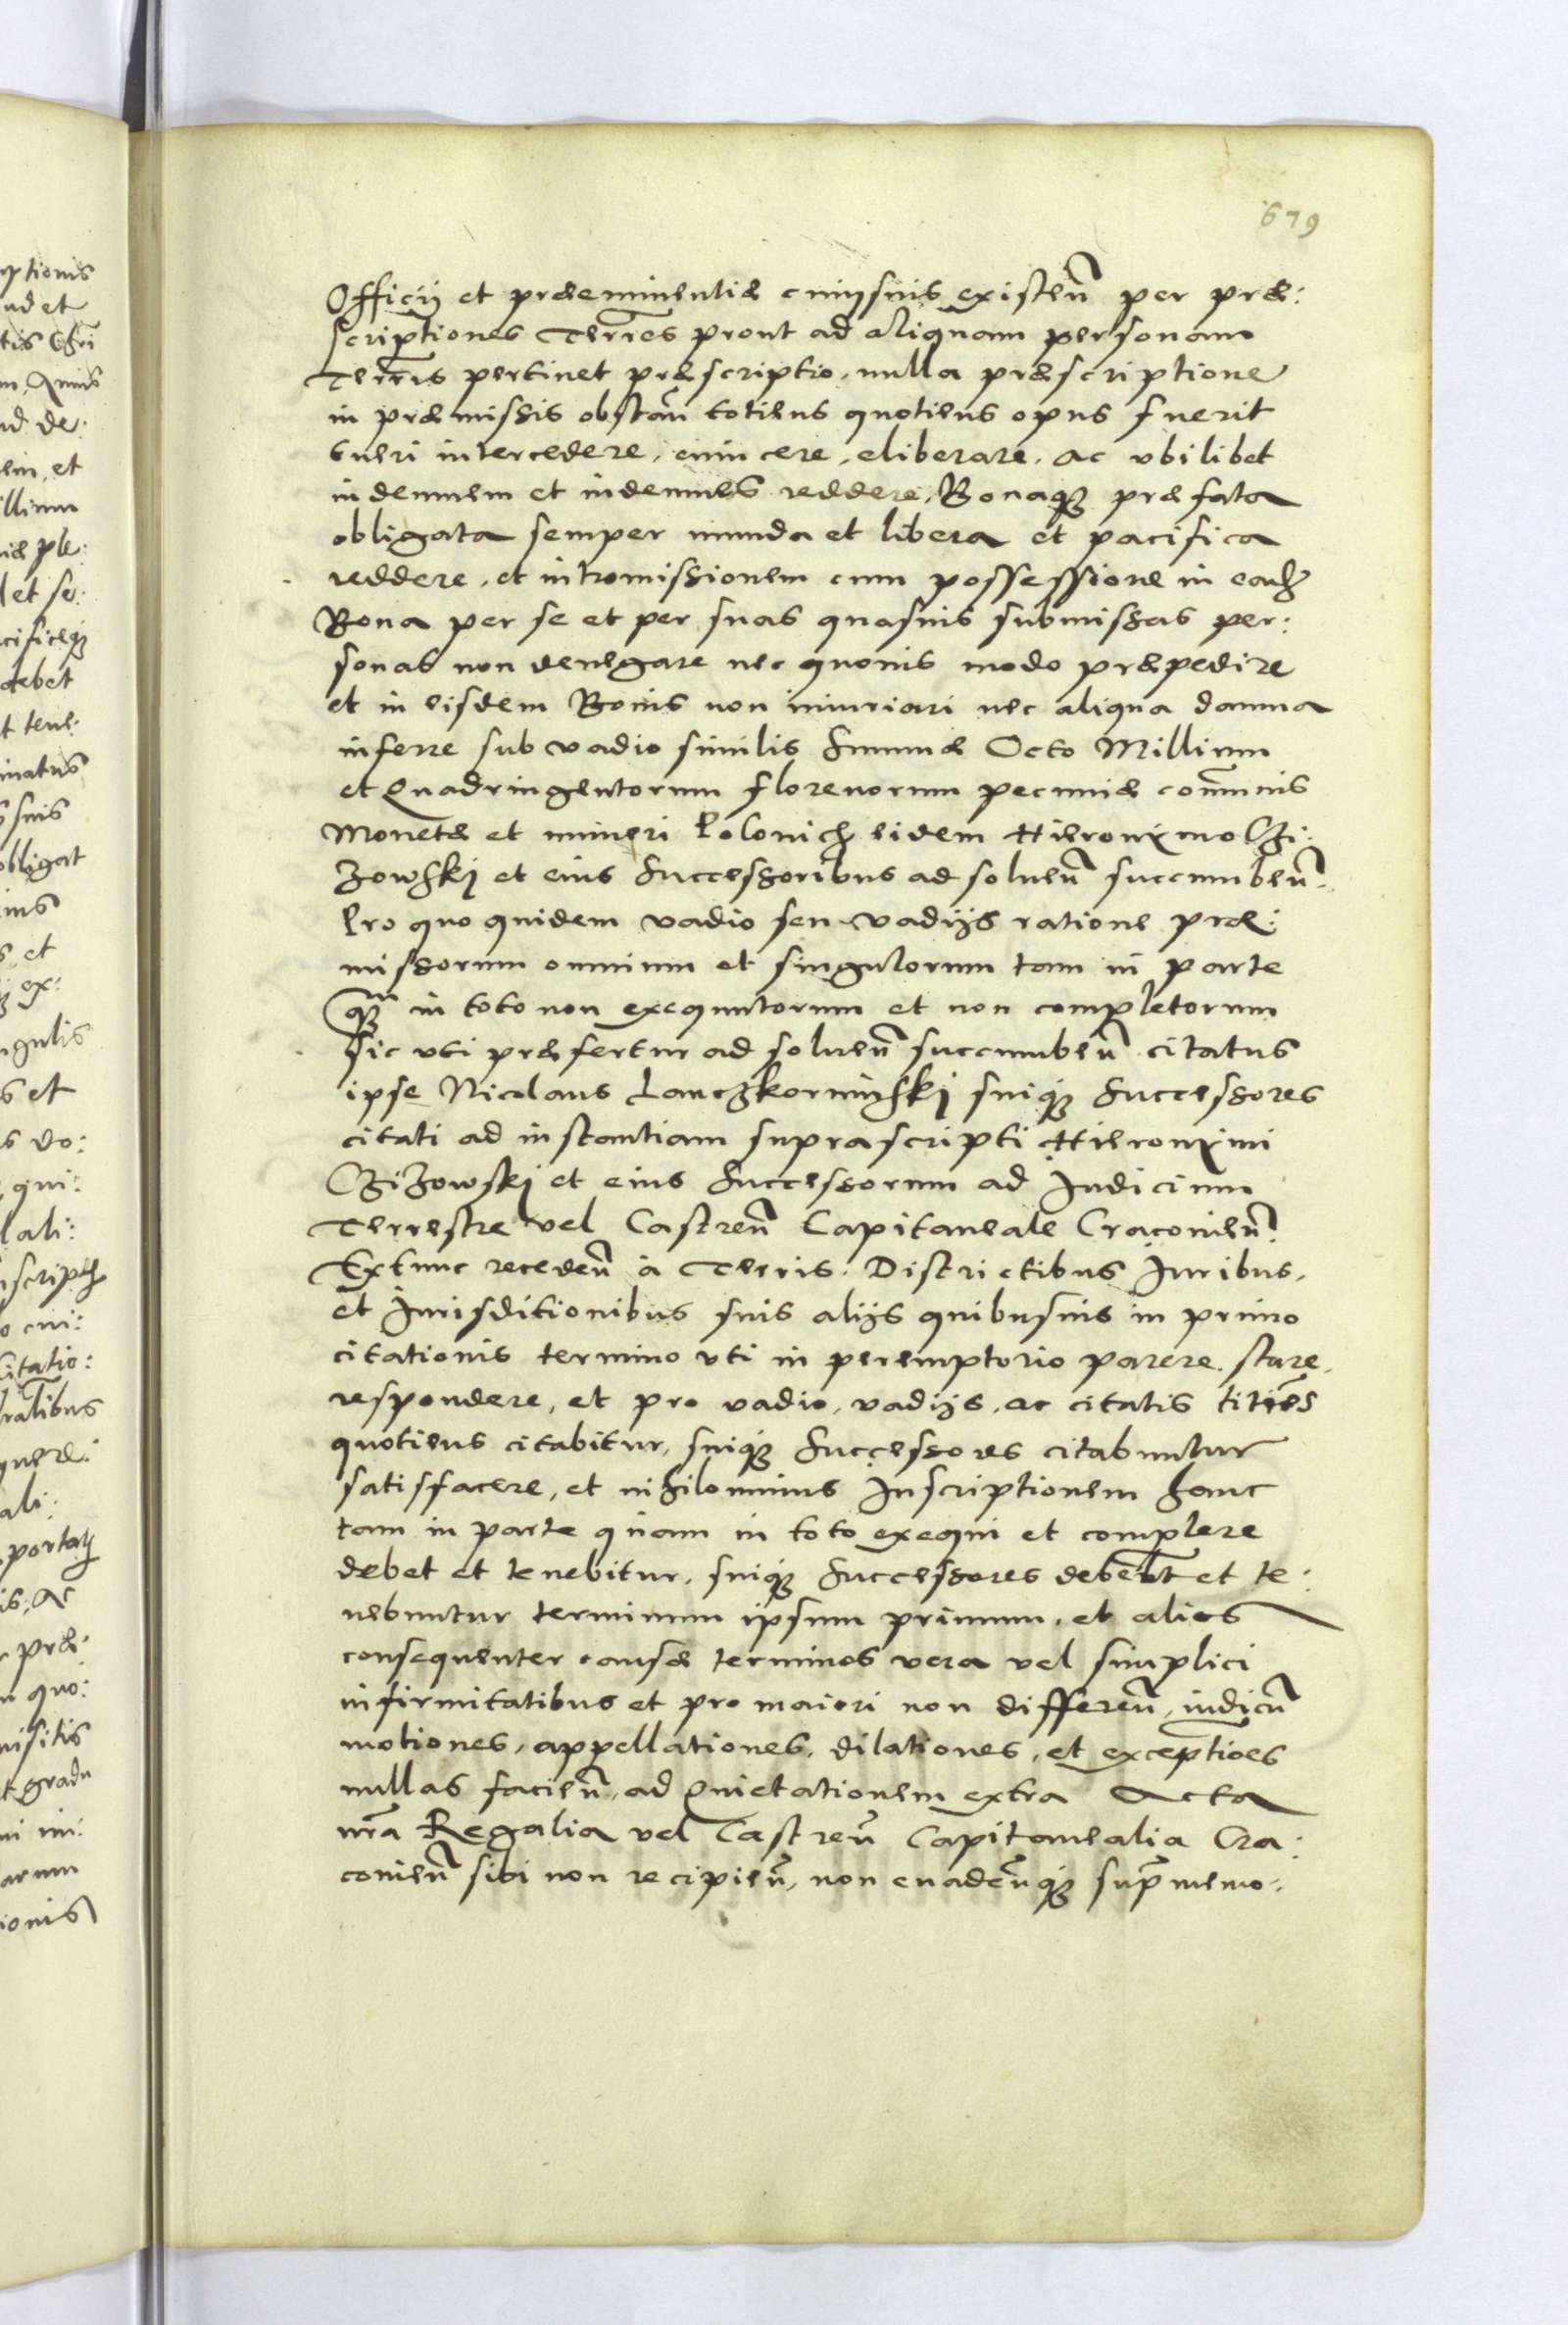 679
Officij et præeminentiæ cuiusuis existeñ per præ:
scriptiones Terr̃es prout ad aliquam personam
Terr̃is pertinet præscriptio, nulla præscriptione
in præmissis obstañ totiens quotiens opus fuerit
tueri intercedere, euincere, eliberare, ac vbilibet
indemnem et indemnes reddere, Bonaq3 præfata
obligata semper munda et libera et pacifica
reddere, et intromissionem cum possessione in eadẽ
Bona per se et per suas quasuis submissas per:
sonas non denegare nec quouis modo præpedire
et in eisdem Bonis non iniuriari nec aliqua damna
inferre sub vadio similis Summæ Octo Millium
et Quadringentorum florenorum pecuniæ com̃unis
Monetæ et numeri Polonich eidem Hieronimo Czi:
zowskj et eius Successoribus ad solueñ succumbeñ.
Pro quo quidem vadio seu vadijs ratione præ:
missorum omnium et singulorum tam in parte
q3 in toto non exequutorum et non completorum
sic vti præfertur ad solueñ succumbeñ citatus
ipse Nicolaus Lanczkorunskj suiq3 Successores
citati ad instantiam suprascripti Hieronimi
Czizowskj et eius Successorum ad Iudicium
Terrestre vel Castreñ Capitaneale Cracouieñ.
Extunc recedeñ à Terris. Districtibus Iuribus,
et Iurisditionibus suis alijs quibusuis in primo
citationis termino vti in peremptorio parere. stare,
respondere, et pro vadio, vadijs, ac citatis titiẽs
quotiens citabitur, suiq3 Successores citabuntur
satisfacere, et nihilominus Inscriptionem hanc
tam in parte quam in toto exequi et complere
debet et tenebitur, suiq3 Successores debebt et te:
nebuntur terminum ipsum primum, et alios
consequenter causæ terminos vera vel simplici
infirmitatibus et pro maiori non differeñ, iudicũ
motiones, appellationes, dilationes, et exceptiões
nullas facieñ, ad Quietationem extra Acta
nr̃a Regalia vel Castreñ Capitanealia Cra:
couieñ sibi non recipieñ, non euadeñq3 sup̃memo: